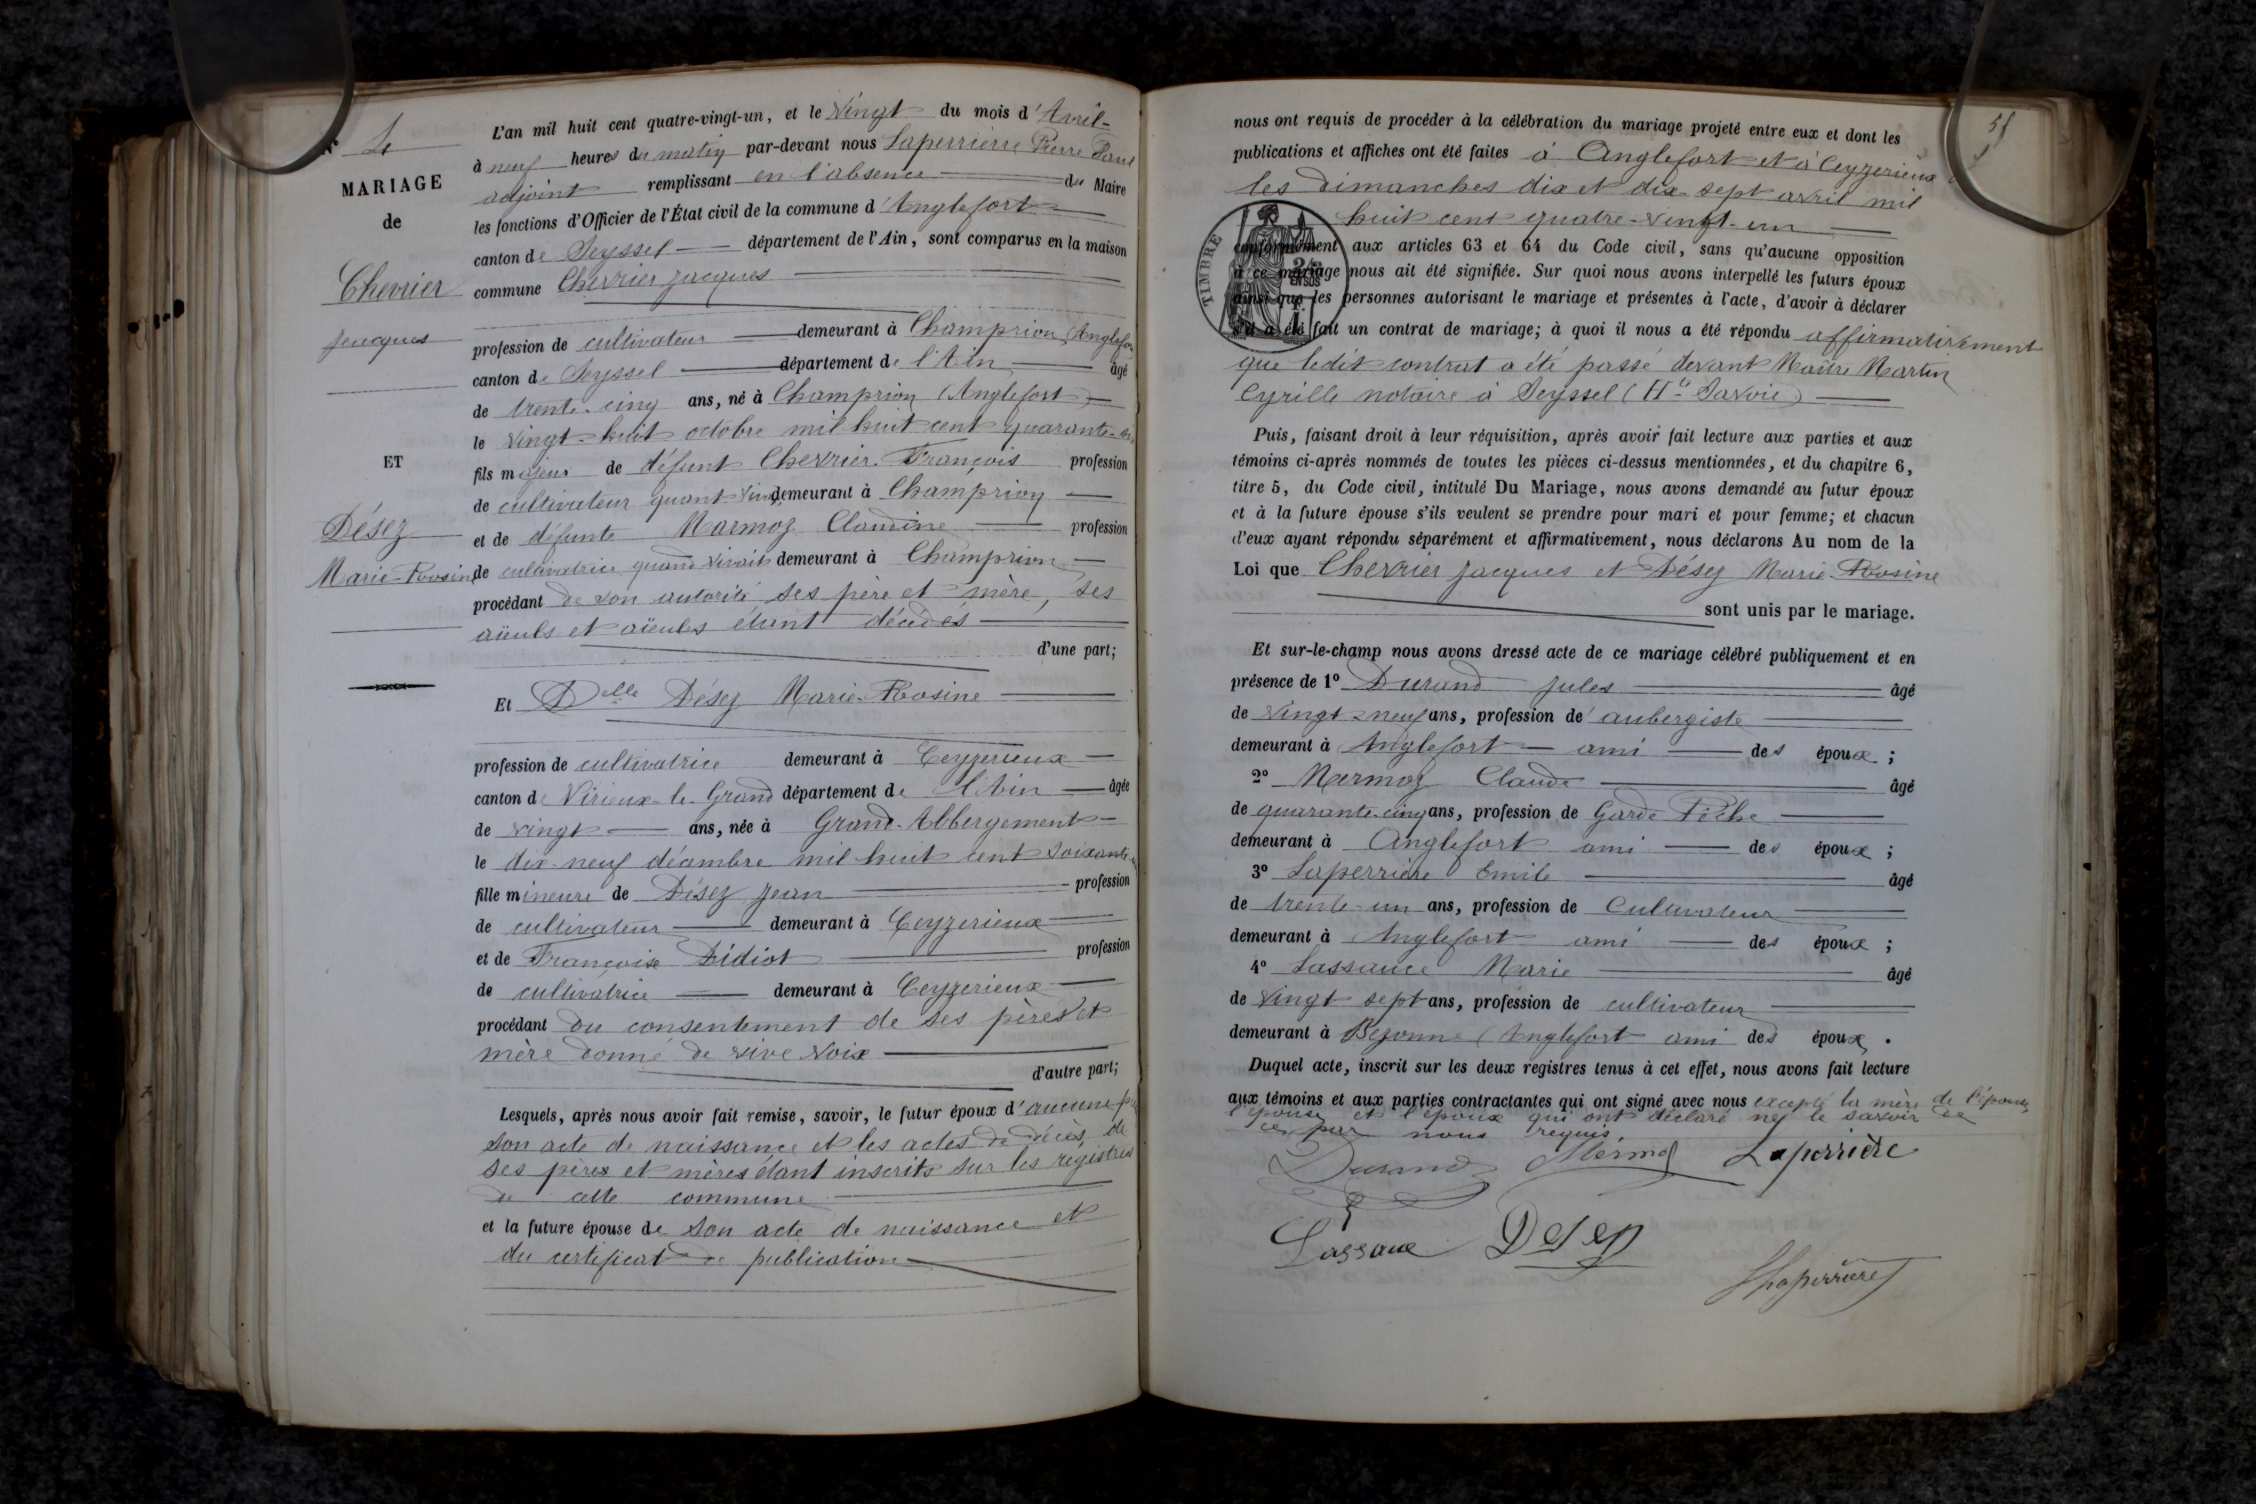 N° 4
MARIAGE
de
Chevrier
Jacques
ET
Désez
Marie-Rosine
L'an mil huit cent quatre-vingt-un, et le vingt du mois d'Avril
à neuf heures du matin par-devant nous Laperrière Pierre Paul
adjoint remplissant en l'absence du Maire
les fonctions d'Officier de l'État civil de la commune d'Anglefort
canton de Seyssel département de l'Ain, sont comparus en la maison
commune Chevrier Jacques
profession de cultivateur demeurant à Champrion (Anglefort
canton de Seyssel département de l'Ain âgé
de trente-cinq ans, né à Champrion (Anglefort)
le vingt-huit octobre mil huit cent quarante
fils majeur de défunt Chevrier François profession
de cultivateur quant demeurant à Champrion
et de défunte Marmoz Claudine profession
de cultivatrice quand vivait demeurant à Champrion
procédant de son autorité ses père et mère, ses
aïeuls et aïeules étant décédés
d'une part;
Et Delle Désez Marie-Rosine
profession de cultivatrice demeurant à Ceyzerieux
canton de Virieux-le-Grand département de l'Ain âgée
de vingt ans, née à Grand-Abbergement
le dix-neuf décembre mil huit cent soixante
fille mineure de Désez Jean profession
de cultivateur demeurant à Ceyzerieux
et de Françoise Didiot profession
de cultivatrice demeurant à Ceyzerieux
procédant du consentement de ses pères et
mère donné de vive voix
d'autre part;
Lesquels, après nous avoir fait remise, savoir, le futur époux d'aucune
son acte de naissance et les actes de décès de
ses pères et mères étant inscrits sur les registres
de cette commune
et la future épouse de son acte de naissance et
du certificat de publication
51
nous ont requis de procéder à la célébration du mariage projeté entre eux et dont les
publications et affiches ont été faites à Anglefort et à Ceyzerieux
les dimanches dix et dix-sept avril mil
huit cent quatre-vingt-un
TIMBRE
conformément aux articles 63 et 64 du Code civil, sans qu'aucune opposition
à ce mariage nous ait été signifiée. Sur quoi nous avons interpellé les futurs époux
EN SUS
ainsi que les personnes autorisant le mariage et présentes à l'acte, d'avoir à déclarer
s'il a été fait un contrat de mariage; à quoi il nous a été répondu affirmativement
que ledit contrat a été passé devant Maître Martin
Cyrille notaire à Seyssel (Hte Savoie)
Puis, faisant droit à leur réquisition, après avoir fait lecture aux parties et aux
témoins ci-après nommés de toutes les pièces ci-dessus mentionnées, et du chapitre 6,
titre 5, du Code civil, intitulé Du Mariage, nous avons demandé au futur époux
et à la future épouse s'ils veulent se prendre pour mari et pour femme; et chacun
d'eux ayant répondu séparément et affirmativement, nous déclarons Au nom de la
Loi que Chevrier Jacques et Désez Marie-Rosine
sont unis par le mariage.
Et sur-le-champ nous avons dressé acte de ce mariage célébré publiquement et en
présence de 1° Durand Jules âgé
de vingt-neuf ans, profession de aubergiste
demeurant à Anglefort ami des époux ;
2° Marmoz Claude âgé
de quarante-cinq ans, profession de Garde Pêche
demeurant à Anglefort ami des époux ;
3° Laperrière Emile âgé
de trente-un ans, profession de Cultivateur
demeurant à Anglefort ami des époux ;
4° Lassauce Marie âgé
de vingt sept ans, profession de cultivateur
demeurant à Bezonne (Anglefort ami des époux .
Duquel acte, inscrit sur les deux registres tenus à cet effet, nous avons fait lecture
aux témoins et aux parties contractantes qui ont signé avec nous excepté la mère de l'épouse
l'épouse et l'époux qui ont déclaré ne le savoir de
ce par nous requis.
Durand Marmoz Laperrière
Lassauce Desez
Laperrière